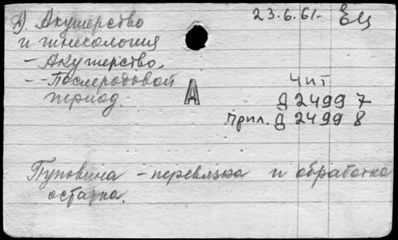 А) Акушерство
и гинекология
23.6.61. ЕЦ
- Акушерство.
-- Послеродовой
период.
А
Чит
Д 2499 7
Прил. Д 2499 8
Пуповина - перевязка и обработка
остатка.